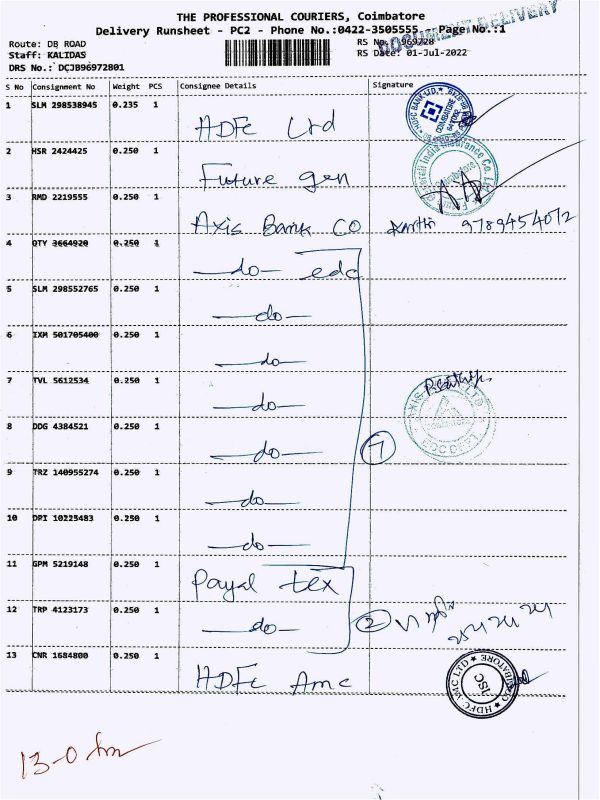 THE PROFESSIONAL COURIERS, Coimbatore
Delivery Runsheet - PC2 - Phone No.:0422-3505555 Page No.:1
DOCUMENT DELIVERY
Route: DB ROAD
RS No.: 969728
Staff: KALIDAS
RS Date: 01-Jul-2022
DRS No.: DCJB96972801
S No Consignment No Weight PCS Consignee Details Signature
1 SLM 298538945 0.235 1 HDFC Ltd
HDFC BANK LTD. COIMBATORE
2 HSR 2424425 0.250 1 Future gen
India Insurance Co. Coimbatore
3 RMD 2219555 0.250 1 Axis Bank CO Karthi 9789454072
4 QTY 3664920 0.250 1 —do— edc
5 SLM 298552765 0.250 1 —do—
6 IXM 501705400 0.250 1 —do—
7 TVL 5612534 0.250 1 —do—
AXIS
8 DDG 4384521 0.250 1 —do— 7
9 TRZ 140955274 0.250 1 —do—
10 DPI 10225483 0.250 1 —do—
11 GPM 5219148 0.250 1 Payal tex
12 TRP 4123173 0.250 1 —do— 2
13 CNR 1684800 0.250 1 HDFC Amc
HDFC AMC LTD ISC
13-0